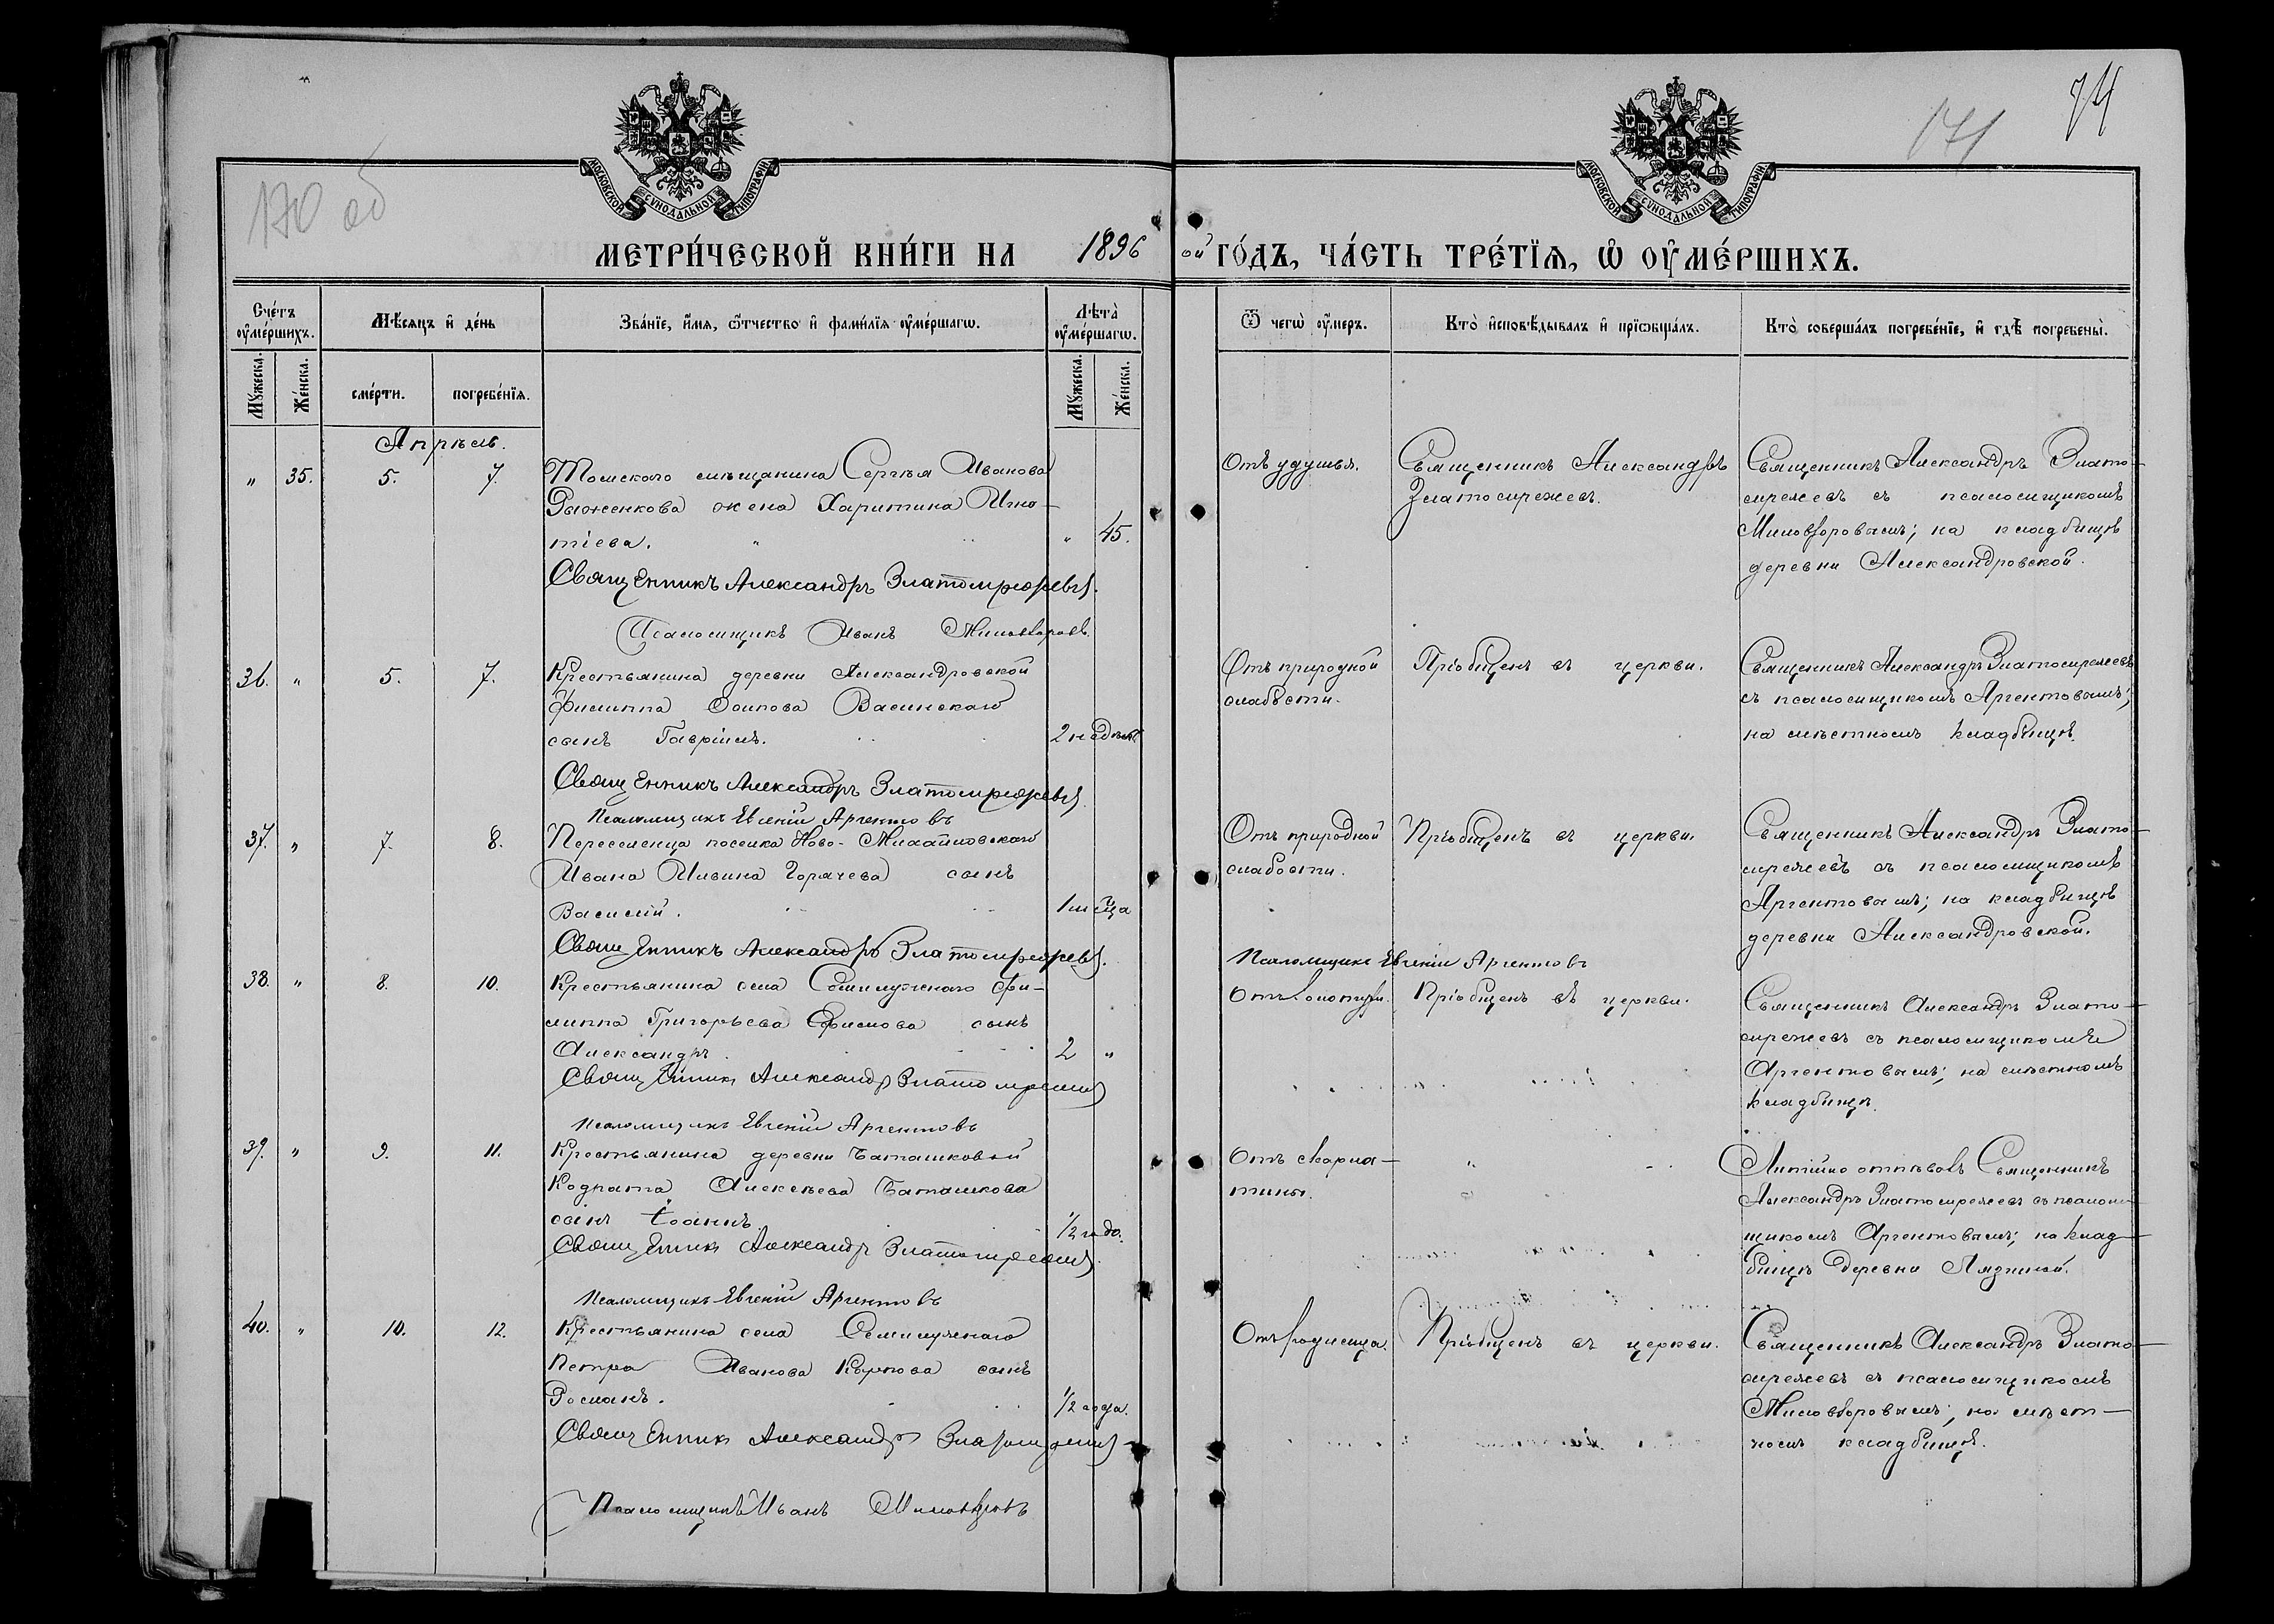 170 об
171
74
МОСКОВСКОЙ СѴНОДАЛЬНОЙ ТИПОГРАФІИ
МОСКОВСКОЙ СѴНОДАЛЬНОЙ ТИПОГРАФІИ
МЕТРИ́ЧЕСКОЙ КНИ́ГИ НА 1896 ой ГО́ДЪ, ЧА́СТЬ ТРЕ́ТЇѦ, Ѡ҆ ОУ҆МЕ́РШИХЪ.
Сче́тъ оу҆ме́ршихъ.
Мꙋ́жеска.
Же́нска.
Мѣ́сяцъ и҆ де́нь
сме́рти.
погребе́нїѧ.
Зва́нїе, и҆́мѧ, ѻ҆́тчество и҆ фами́лїѧ оу҆ме́ршагѡ.
Лѣ́та оу҆ме́ршагѡ.
Мꙋ́жеска.
Же́нска.
Ѿ чегѡ̀ оу҆́меръ.
Кто̀ и҆сповѣ́дывалъ и҆ прїѡбща́лъ.
Кто̀ соверша́лъ погребе́нїе, и҆ гдѣ̀ погребены̀.
Апрѣль.
" 35. 5. 7.
Томскаго мѣщанина Сергѣя Иванова
Рыженкова жена Харитина Игна-
тіева. " 45.
Священникъ Александръ Златомрежевъ.
Псаломщикъ Иванъ Миловзоровъ.
Отъ удушья.
Священникъ Александръ
Златомрежевъ.
Священникъ Александръ Злато-
мрежевъ съ псаломщикомъ
Миловзоровымъ; на кладбищѣ
деревни Александровской.
36. " 5. 7.
Крестьянина деревни Александровской
Филиппа Осипова Васинскаго
сынъ Гавріилъ. 2 недѣли
Священникъ Александръ Златомрежевъ.
Псаломщикъ Евгеній Аргентовъ
Отъ природной
слабости.
Пріобщенъ въ церкви.
Священникъ Александръ Златомрежевъ
съ псаломщикомъ Аргентовымъ;
на мѣстномъ кладбищѣ.
37. " 7. 8.
Переселенца поселка Ново-Михайловскаго
Ивана Горячева сынъ
Василій. 1 м-ца
Священникъ Александръ Златомрежевъ.
Псаломщикъ Евгеній Аргентовъ
Отъ природной
слабости.
Пріобщенъ въ церкви.
Священникъ Александръ Злато-
мрежевъ съ псаломщикомъ
Аргентовымъ; на кладбищѣ
деревни Александровской.
38. " 8. 10.
Крестьянина села Семилужнаго Фи-
липпа Григорьева Ефимова сынъ
Александръ 2 "
Священникъ Александръ Златомрежевъ
Псаломщикъ Евгеній Аргентовъ
Отъ
Пріобщенъ въ церкви.
Священникъ Александръ Злато-
мрежевъ съ псаломщикомъ
Аргентовымъ; на мѣстномъ
кладбищѣ.
39. " 9. 11.
Крестьянина деревни Баташковой
Кодрата Алексѣева Баташкова
сынъ Іоаннъ. 1/2 года.
Священникъ Александръ Златомрежевъ
Псаломщикъ Евгеній Аргентовъ
Отъ скарла-
тины.
"
Литійно отпѣвалъ Священникъ
Александръ Златомрежевъ съ псалом-
щикомъ Аргентовымъ; на клад-
бищѣ деревни Лязгиной.
40. " 10. 12.
Крестьянина села Семилужнаго
Петра Иванова Карпова сынъ
Романъ. 1/2 года.
Священникъ Александръ Златомрежевъ
Псаломщикъ Иванъ Миловзоровъ
Отъ родимца.
Пріобщенъ въ церкви.
Священникъ Александръ Злато-
мрежевъ съ псаломщикомъ
Миловзоровымъ; на мѣст-
номъ кладбищѣ.